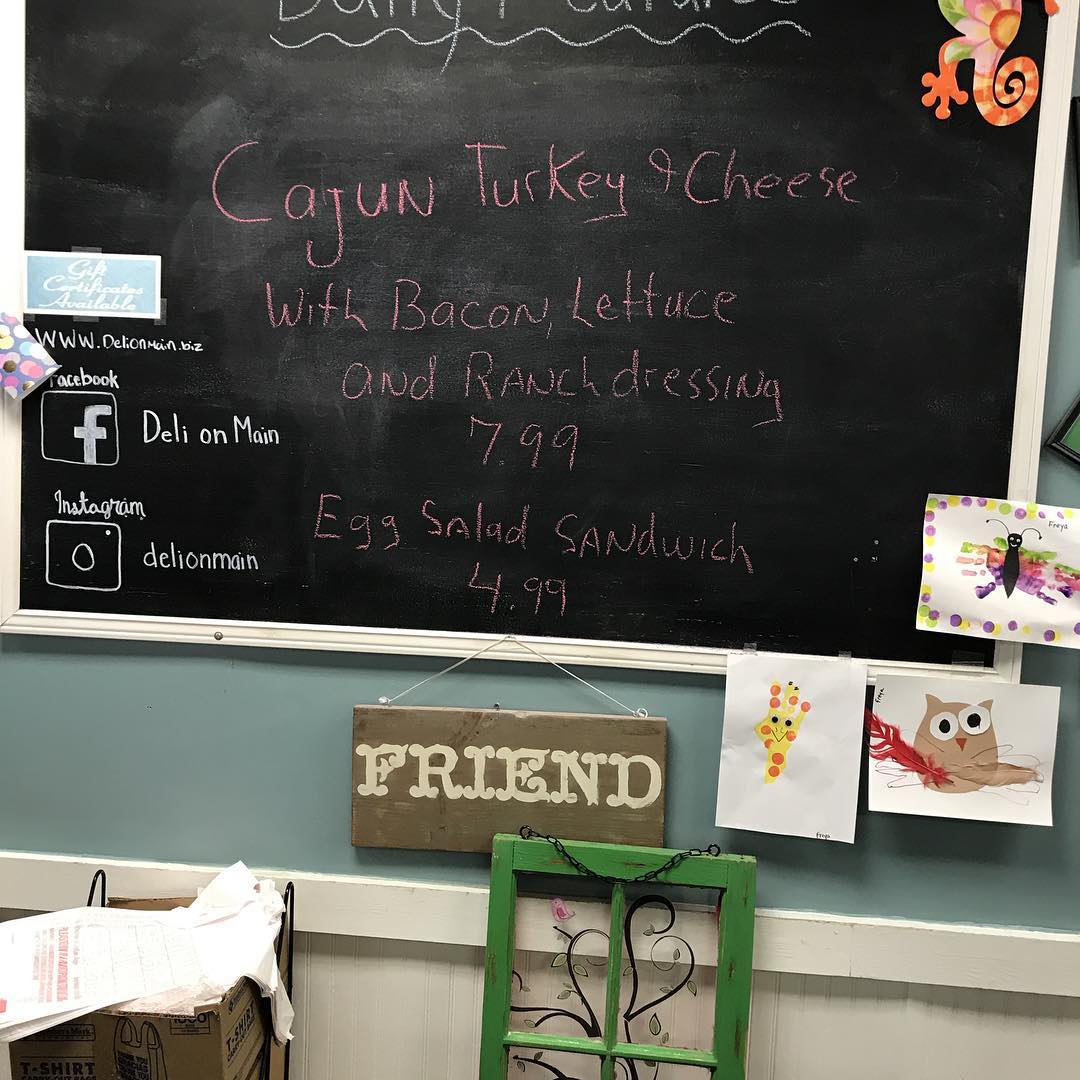 Daily Features
Cajun Turkey & Cheese
With Bacon, Lettuce
and Ranch dressing
7.99
Egg Salad Sandwich
4.99
Gift
Certificates
Available
WWW.Delionmain.biz
Facebook
f
Deli on Main
Instagram
delionmain
Freya
Freya
Freya
FRIEND
1000
T-SHIRT
CARRY OUT BAGS
T-SHIRT